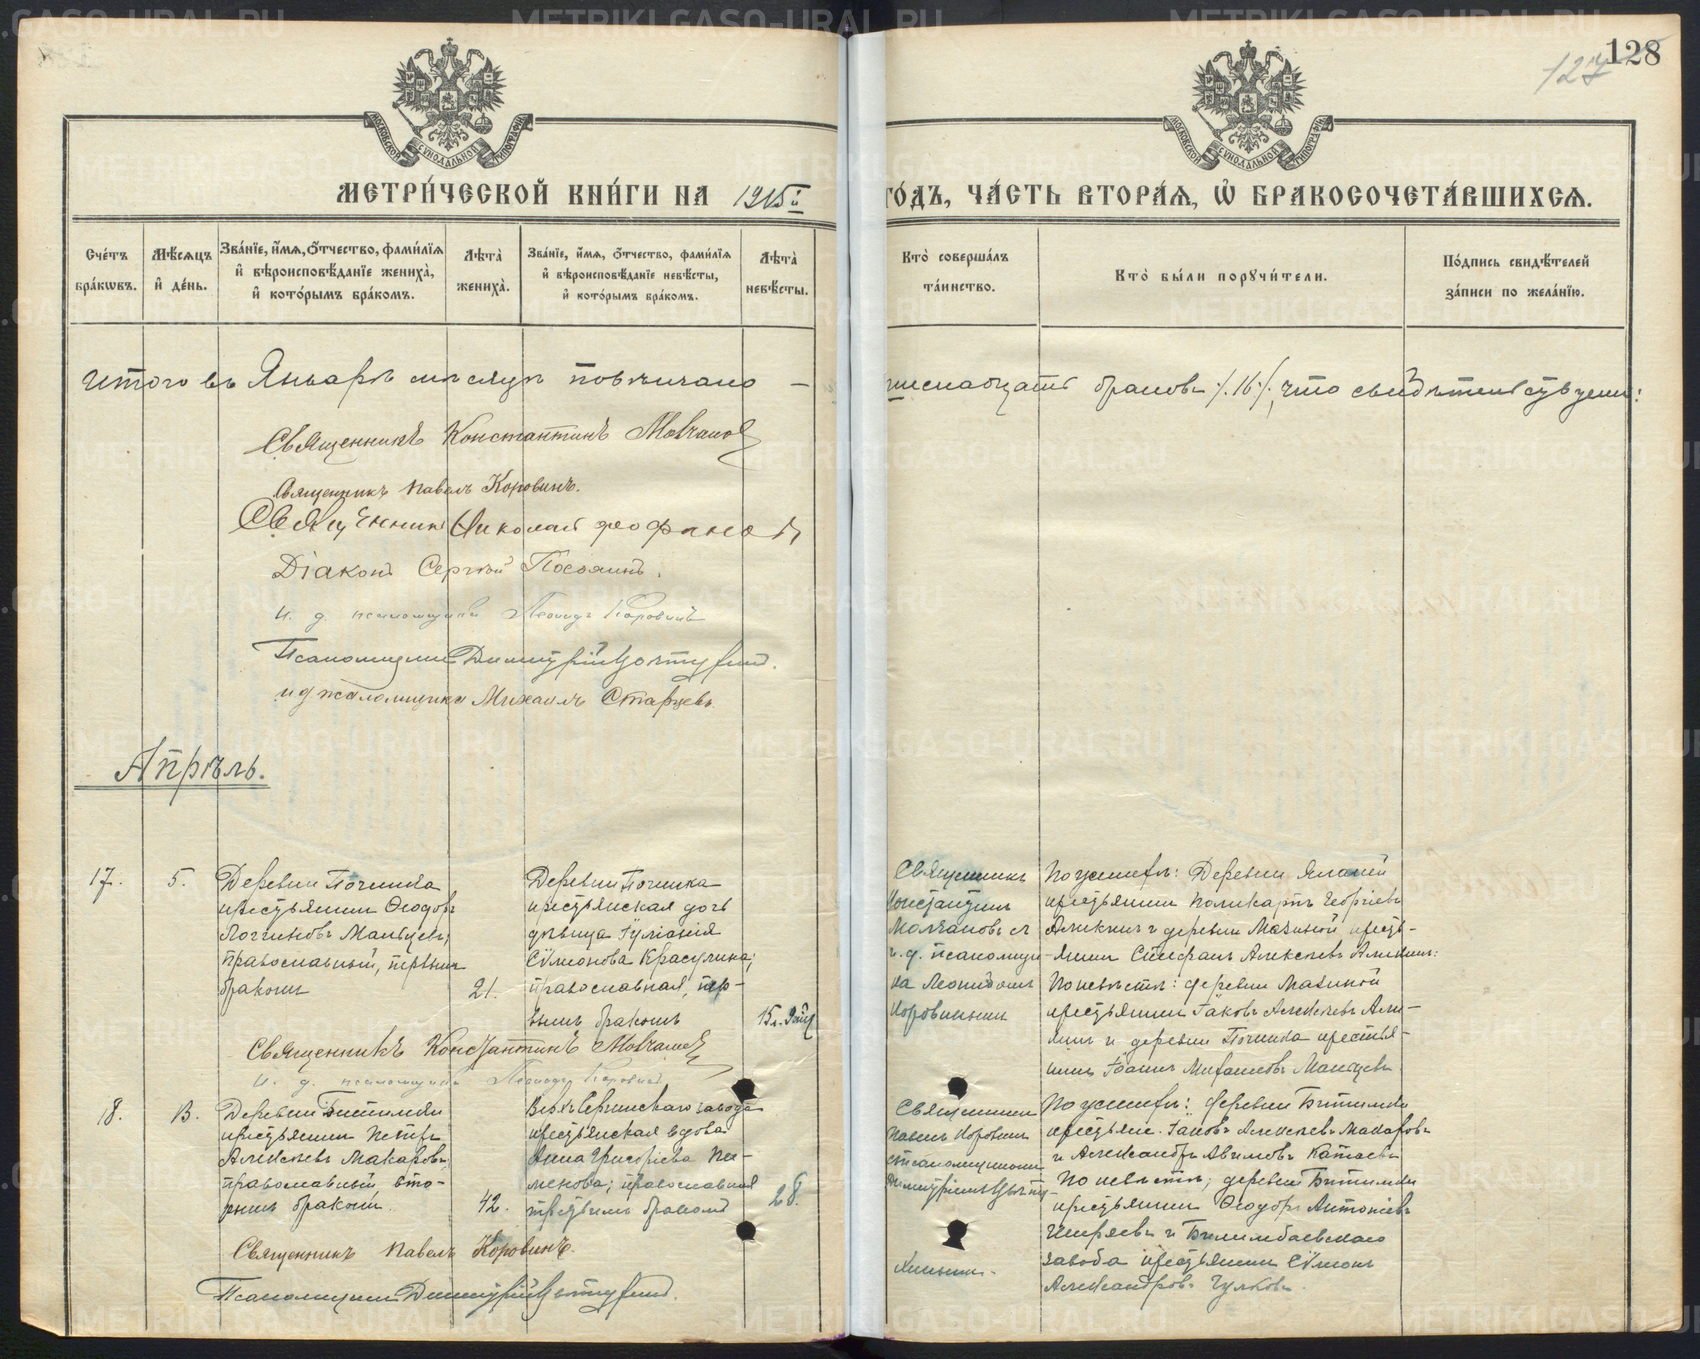 128
127
МОСКОВСКОЙ СѴНОДАЛЬНОЙ ТИПОГРАФІИ
МОСКОВСКОЙ СѴНОДАЛЬНОЙ ТИПОГРАФІИ
МЕТРИ́ЧЕСКОЙ КНИ́ГИ НА 1915й
ГО́ДЪ, ЧА́СТЬ ВТОРА́Я, Ѽ БРАКОСОЧЕТА́ВШИХСЯ.
Сче́тъ бра́кωвъ.
Мѣ́сяцъ и҆ де́нь.
Зва́нїе, и҆́мя, ѻ҆́тчество, фами́лїя и҆ вѣроисповѣ́данїе жениха̀, и҆ кото́рымъ бра́комъ.
Лѣ́та жениха̀.
Зва́нїе, и҆́мя, ѻ҆́тчество, фами́лїя и҆ вѣроисповѣ́данїе невѣ́сты, и҆ кото́рымъ бра́комъ.
Лѣ́та невѣ́сты.
Кто̀ соверша́лъ та́инство.
Кто̀ бы́ли порꙋчи́тели.
По́дпись свидѣ́телей за́писи по жела́нїю.
Итого въ Январѣ мѣсяцѣ повѣнчано —
шестнадцать браковъ /.16./, что свидѣтельствуемъ:
Священникъ Константинъ Молчановъ
Священникъ Павелъ Коровинъ.
Священникъ Николай Феофановъ
Діаконъ Сергѣй
и. д. псаломщика Леонидъ Коровинъ
Псаломщикъ Димитрій
и д псаломщика Михаилъ Старцевъ
Апрѣль.
17.
5.
Деревни Починка
крестьянинъ Ѳеодоръ
Логгиновъ Мальцевъ,
православный, первымъ
бракомъ
21.
Деревни Починка
крестьянская дочь
дѣвица Іуліанія
Сѵмеонова Красулина;
православная, пер-
вымъ бракомъ
Священникъ
Константинъ
Молчановъ съ
и. д. псаломщи-
ка Леонидомъ
Коровинымъ
По женихѣ: Деревни
крестьянинъ Поликарпъ Георгіевъ
и деревни Мазиной кресть-
янинъ Стефанъ Алексѣевъ
По невѣстѣ: деревни Мазиной
крестьянинъ Іаковъ Алексѣевъ
и деревни Починка крестья-
нинъ Іоаннъ Мальцевъ
Священникъ Константинъ Молчановъ
и. д. псаломщика Леонидъ Коровинъ
18.
Деревни Битимки
крестьянинъ Петръ
Алексѣевъ Макаровъ,
православный вто-
рымъ бракомъ.
42.
Верхъ Сергинскаго завода
крестьянская вдова
Анна Григорьева Пи-
менова; православная
третьимъ бракомъ
28.
Священникъ
Павелъ Коровинъ
съ псаломщикомъ
По женихѣ: деревни Битимки
крестьяне: Іаковъ Алексѣевъ Макаровъ
и Александръ Авимовъ Катаевъ
По невѣстѣ; деревни Битимки
крестьянинъ Ѳеодоръ Антоніевъ
и Билимбаевскаго
завода крестьянинъ Сѵмеонъ
Александровъ Чулковъ
Священникъ Павелъ Коровинъ.
Псаломщикъ Димитрій